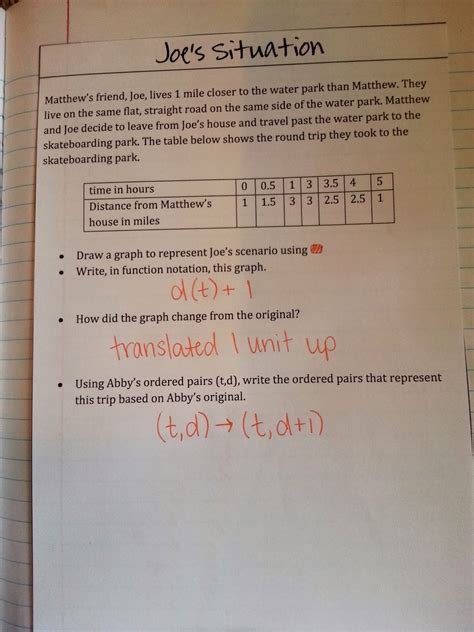 Joe's Situation
Matthew's friend, Joe, lives 1 mile closer to the water park than Matthew. They
live on the same flat, straight road on the same side of the water park. Matthew
and Joe decide to leave from Joe's house and travel past the water park to the
skateboarding park. The table below shows the round trip they took to the
skateboarding park.
time in hours 0 0.5 1 3 3.5 4 5
Distance from Matthew's 1 1.5 3 3 2.5 2.5 1
house in miles
• Draw a graph to represent Joe's scenario using
• Write, in function notation, this graph.
d(t) + 1
• How did the graph change from the original?
translated 1 unit up
• Using Abby's ordered pairs (t,d), write the ordered pairs that represent
this trip based on Abby's original.
(t,d) → (t, d+1)